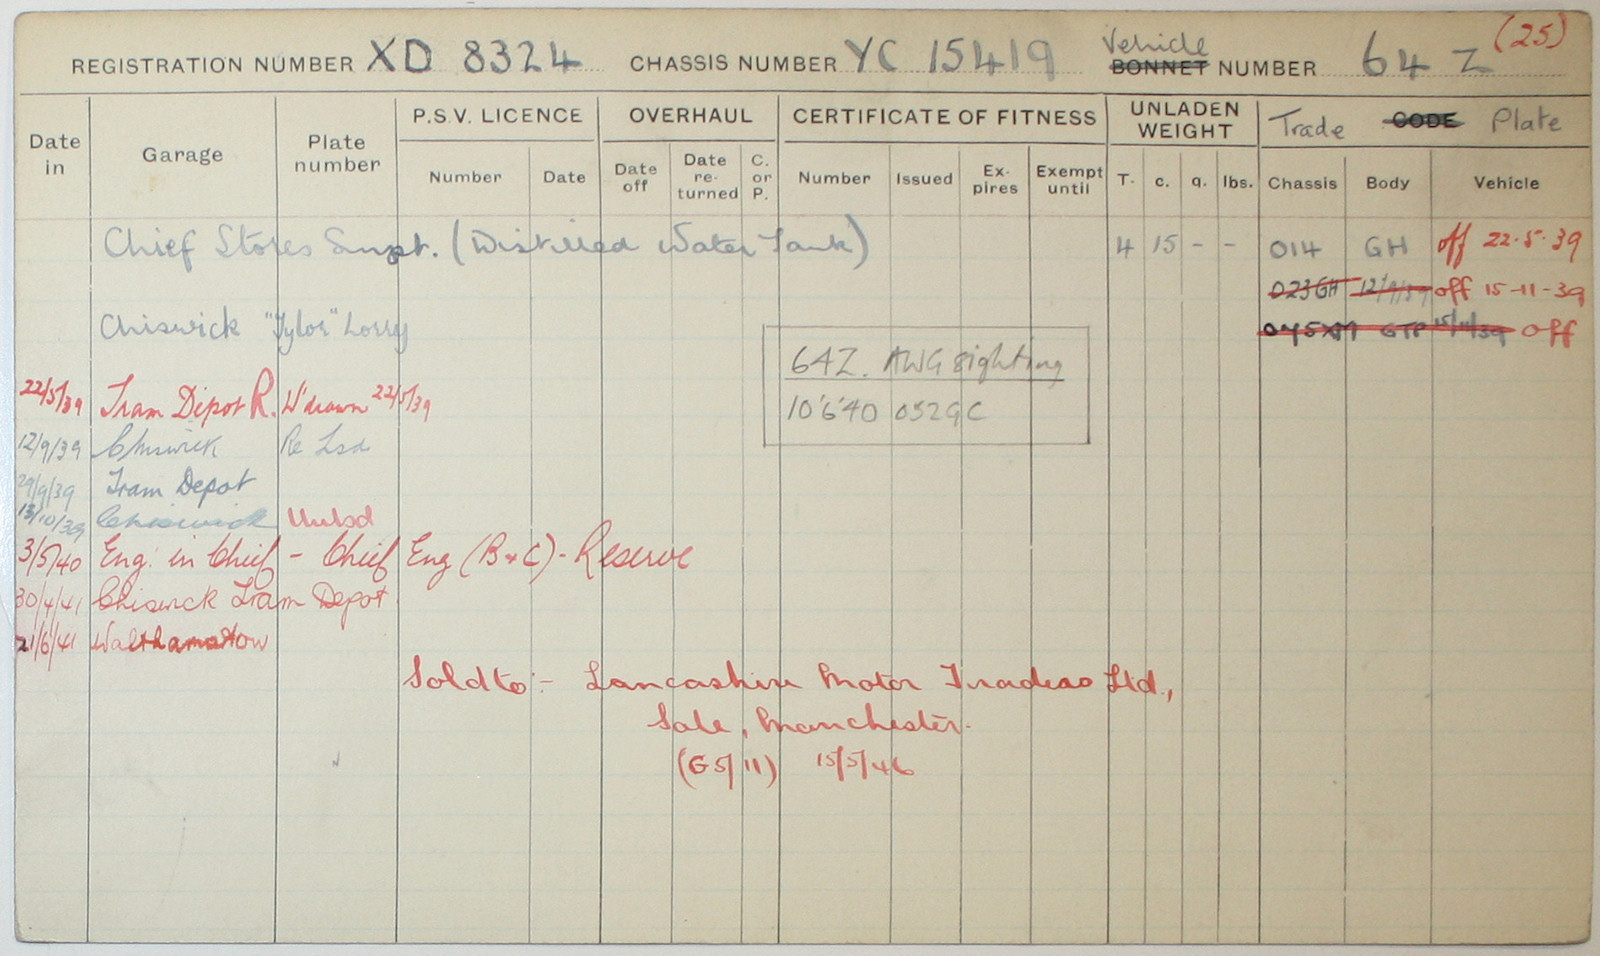 (25)
REGISTRATION NUMBER XD 8324 CHASSIS NUMBER YC 15419 Vehicle BONNET NUMBER 64 Z
P.S.V. LICENCE OVERHAUL CERTIFICATE OF FITNESS UNLADEN WEIGHT Trade CODE Plate
Date in Garage Plate number Number Date Date off Date re-turned C. or P. Number Issued Ex-pires Exempt until T. c. q. lbs. Chassis Body Vehicle
Chief Stores Supt. (Distilled Water Tank) 4 15 - - 014 GH off 22-5-39
023GH 12/9/39 off 15-11-39
Chiswick "Tylor" Lorry 15/11/39 off
64Z. AWG sighting
22/5/39 Tram Depot R. W'drawn 22/5/39
10'6'40 052GC
12/9/39 Chiswick Re Lsd
29/9/39 Tram Depot
13/10/39 Chiswick Unlsd
3/5/40 Eng. in Chief - Chief Eng (B+C) - Reserve
30/4/41 Chiswick Tram Depot
21/6/41 Walthamstow
Sold to :- Lancashire Motor Traders Ltd.,
Sale, Manchester.
(G5/11) 15/5/46